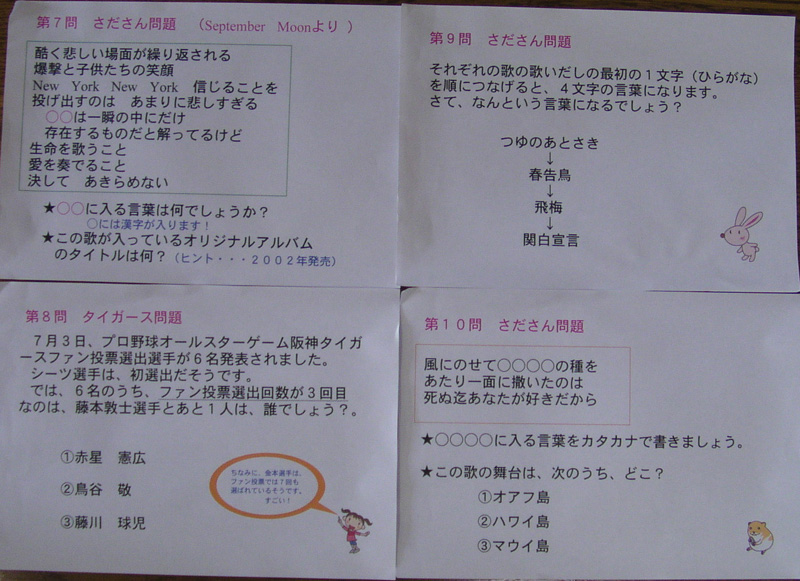 第７問　さださん問題　（September　Moonより ）
酷く悲しい場面が繰り返される
爆撃と子供たちの笑顔
New　York　New　York　信じることを
投げ出すのは　あまりに悲しすぎる
○○は一瞬の中にだけ
存在するものだと解ってるけど
生命を歌うこと
愛を奏でること
決して　あきらめない
★○○に入る言葉は何でしょうか？
○には漢字が入ります！
★この歌が入っているオリジナルアルバム
のタイトルは何？（ヒント・・・２００２年発売）
第９問　さださん問題
それぞれの歌の歌いだしの最初の１文字（ひらがな）
を順につなげると、４文字の言葉になります。
さて、なんという言葉になるでしょう？
つゆのあとさき
↓
春告鳥
↓
飛梅
↓
関白宣言
第８問　タイガース問題
７月３日、プロ野球オールスターゲーム阪神タイガ
ースファン投票選出選手が６名発表されました。
シーツ選手は、初選出だそうです。
では、６名のうち、ファン投票選出回数が３回目
なのは、藤本敦士選手とあと１人は、誰でしょう？。
①赤星　憲広
②鳥谷　敬
③藤川　球児
ちなみに、金本選手は、
ファン投票では７回も
選ばれているそうです。
すごい！
第１０問　さださん問題
風にのせて○○○○の種を
あたり一面に撒いたのは
死ぬ迄あなたが好きだから
★○○○○に入る言葉をカタカナで書きましょう。
★この歌の舞台は、次のうち、どこ？
①オアフ島
②ハワイ島
③マウイ島